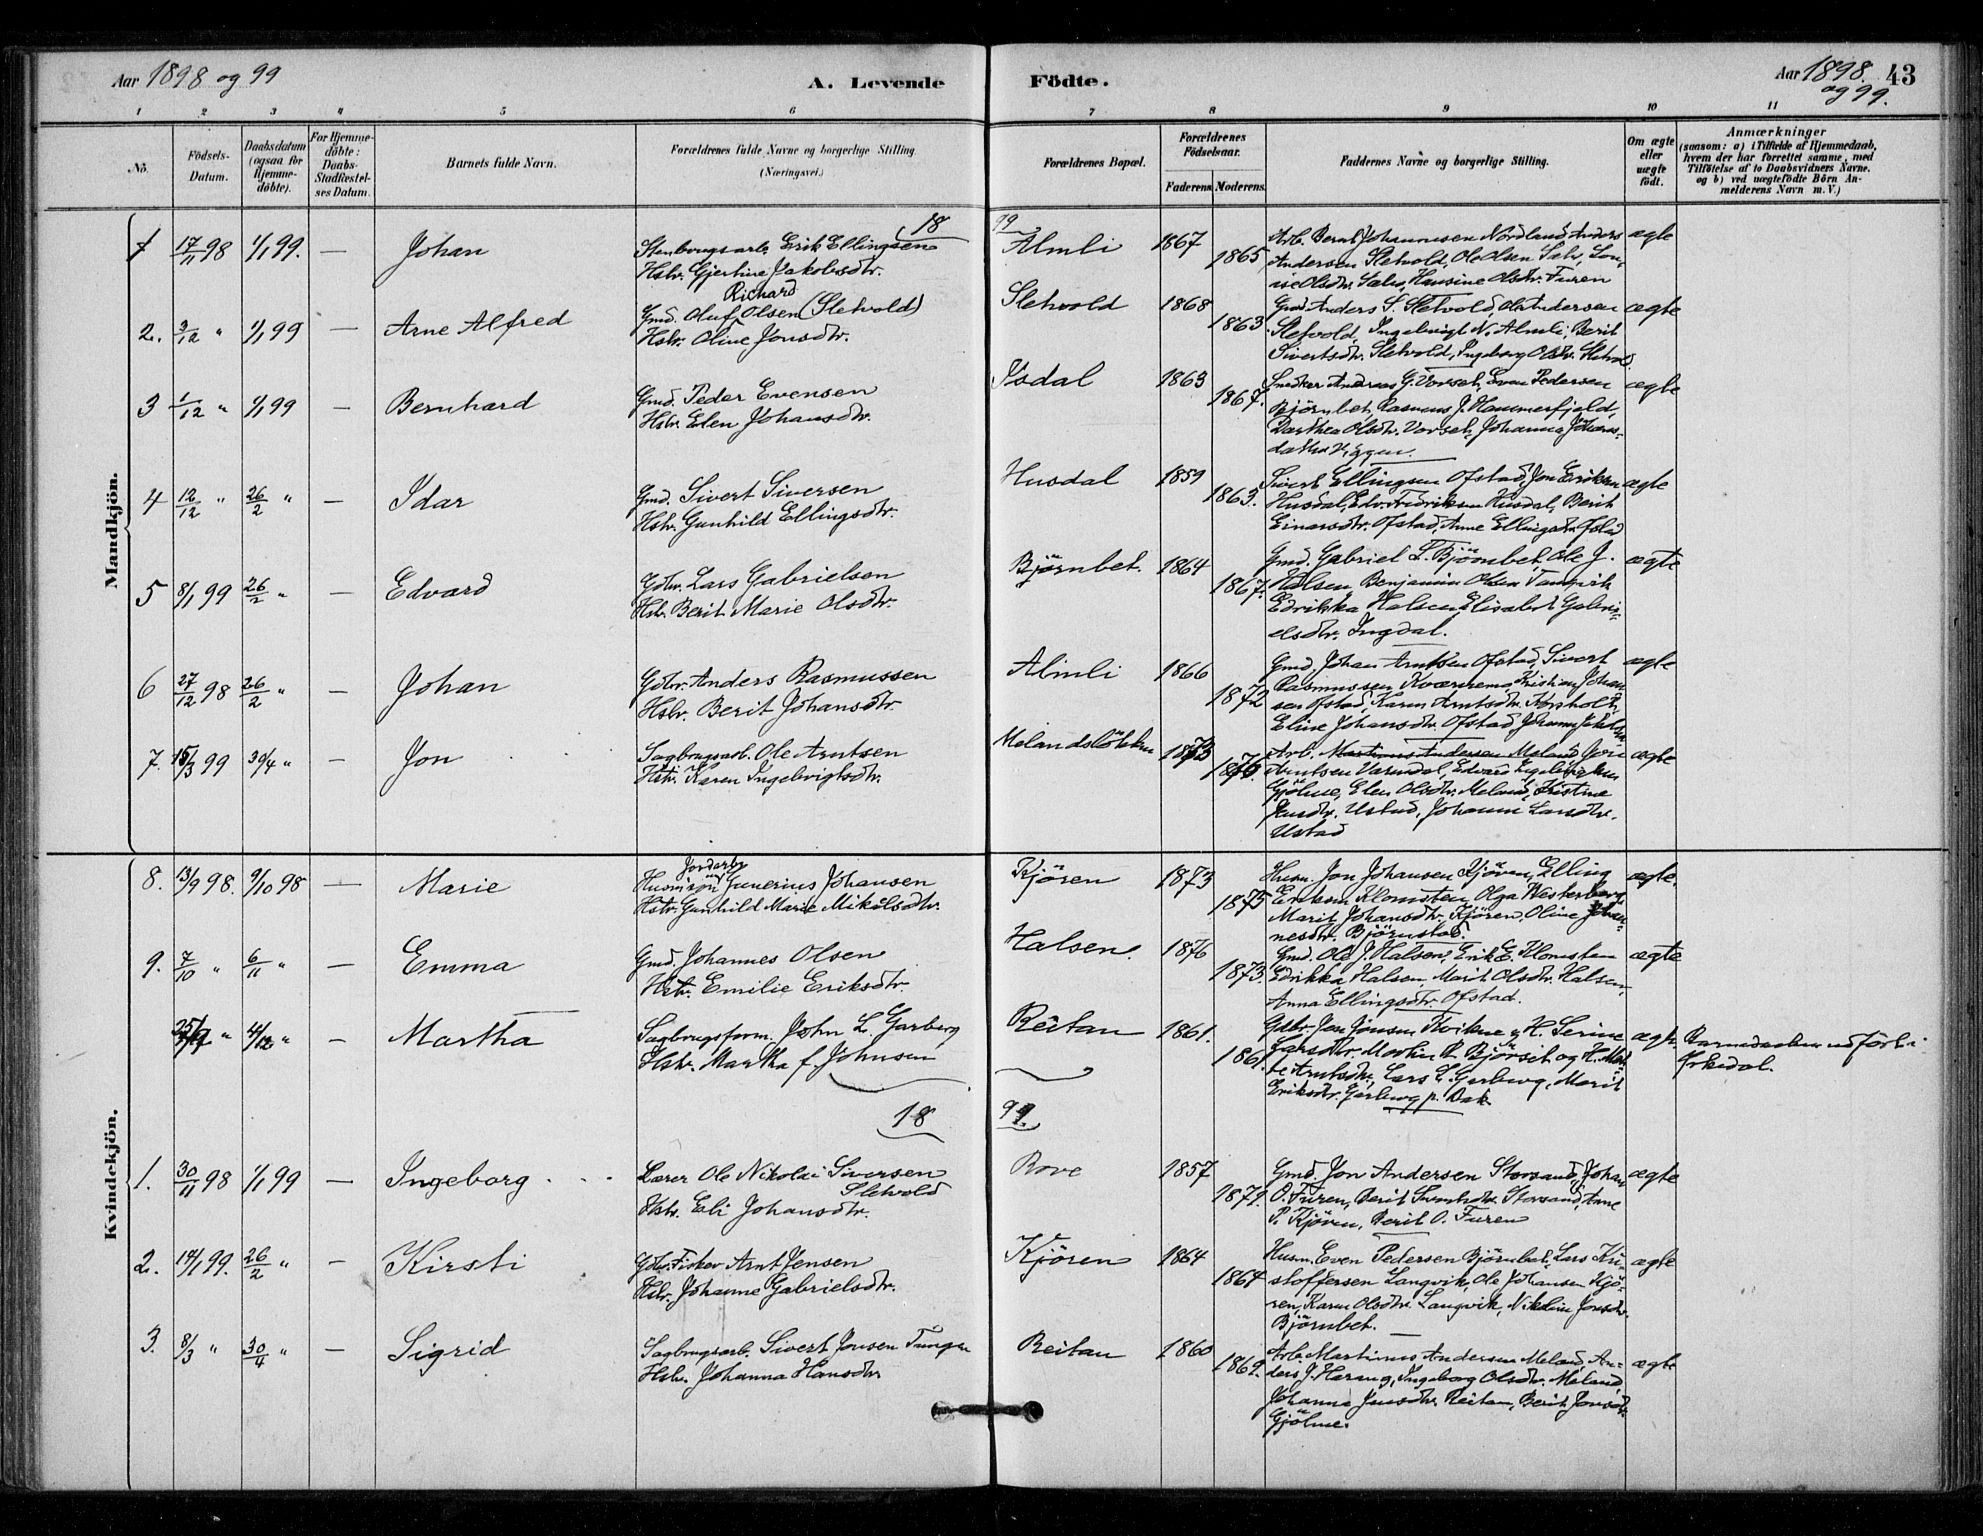 Aar 1898 og 99
A. Levende
Födte.
Aar 1898 og 99.
43
1 2 3 4 5 6 7 8 9 10 11
No.
Födsels-Datum.
Daabsdatum (ogsaa for Hjemmedöbte).
For Hjemmedöbte: Daabs-Stadfæstelses Datum.
Barnets fulde Navn.
Forældrenes fulde Navne og borgerlige Stilling. (Næringsvei.)
Forældrenes Bopæl.
Forældrenes Födselsaar.
Faderens. Moderens.
Faddernes Navne og borgerlige Stilling.
Om ægte eller uægte födt.
Anmærkninger
(saasom: a) i Tilfælde af Hjemmedaab,
hvem der har forrettet samme, med
Tilföielse af to Daabsvidners Navne.
og b) ved uægtefödte Börn An-
melderens Navn m. V.)
Mandkjön.
18 99
1 17/11 98 1/1 99. — Johan
Stenbrugsarb. Erik Ellingsen
Hstr. Gjertine Jakobsdtr.
Almli 1867 1865
Arb. Bernt Johannesen Nordland, Anders
Andersen Sletvold, Ole Olsen
Hansine Olsdtr. Furen
ægte
2. 3/12 " 1/1 99 — Arne Alfred
Richard
Gmd. Oluf Olsen (Sletvold)
Hstr. Oline Jonsdtr.
Sletvold 1868 1863.
Gmd. Anders S. Sletvold, Andersen
Sletvold, Ingebrigt N. Almli, Berit
Sivertsdtr. Sletvold, Ingeborg
ægte
3 1/12 " 1/1 99 — Bernhard
Gmd. Peder Evensen
Hstr. Elen Johansdtr.
Isdal 1863 1867.
Snedker Andreas G. Vorset, Even Pedersen
Björnbet, Rasmus J. Hammerfjeld,
Dorthea Olsdtr. Vorset, Johanna Johans-
datter Viggen.
ægte
4 12/12 " 26/2 " — Idar
Gmd. Sivert Siversen
Hstr. Gunhild Ellingsdtr.
Husdal 1859 1863.
Sivert Ellingsen Ofstad, Jon Eriksen
Husdal, Edv. Fredriksen Husdal, Berit
Einarsdtr. Ofstad, Anne Ellingsdtr. Ofstad
ægte
5 8/1 99 26/2 " — Edvard
Gdbr. Lars Gabrielsen
Hstr. Berit Marie Olsdtr.
Björnbet. 1864 1867.
Gmd. Gabriel L. Björnbet, Ole J.
Halsen, Benjamin Olsen
Edrikka Halsen, Elisabet Gabri-
elsdtr. Ingdal.
ægte
6 27/12 98 26/2 " — Johan
Gdbr. Anders Rasmussen
Hstr. Berit Johansdtr.
Almli 1866 1872
Gmd. Johan Arntsen Ofstad, Sivert
Rasmussen Kværnmo, Kristian Johan
sen Ofstad, Karen Arntsdtr.
Eline Johansdtr. Ofstad
ægte
7. 15/3 99 30/4 " — Jon
Sagbrugsarb. Ole Arntsen
Hstr. Karen Ingebrigtsdtr.
1873 1876.
Arb. Martinus Andersen Meland, Jon
Arntsen Varmdal, Edvard Ingebrigtsen
Gjölme, Elen Olsdtr. Meland, Kristine
Ustad, Johanne Larsdtr.
Ustad
ægte
Kvindekjön.
8. 13/9 98. 9/10 98 — Marie
Jordarb.
Husm. Gunerius Johansen
Hstr. Gunhild Marie Mikalsdtr.
Kjören 1873 1875
Husm. Jon Johansen Kjören, Elling
Eriksen Klomsten, Olga Westerberg,
Marit Johansdtr. Kjören, Oline Johan-
nesdtr. Björnstad.
ægte.
9. 7/10 " 6/11 " — Emma
Gmd. Johannes Olsen
Hstr. Emilie Eriksdtr.
Halsen. 1876 1873.
Gmd. Ole J. Halsen, Erik E. Klomsten
Edrikka Halsen, Marit Olsdtr. Halsen,
Anna Ellingsdtr. Ofstad.
ægte
25/9 " 4/12 " — Martha
Sagbrugsform. John L. Garberg
Hstr. Martha f. Johnsen
Reitan 1861. 1861
Gdbr. Jon Jonsen Kvikne og H. Serine
Larsdtr. Martin R. Björset og H.
Arntsdtr., Lars L. Garberg, Marit
Eriksdtr. Garberg p. Bak.
ægte. Barnedaaben udfört i
Orkedal.
18 99.
1. 30/11 98 1/1 99 — Ingeborg
Lærer Ole Nikolai Siversen
Sletvold
Hstr. Eli Johansdtr.
Rove 1857 1871.
Gmd. Jon Andersen Storsand, Johan
O. Furen, Berit Sivertsdtr. Storsand, Anne
P. Kjören, Berit O. Furen
ægte
2. 14/1 99. 26/2 " — Kirsti
Gdbr. Fisker Arnt Jensen
Hstr. Johanne Gabrielsdtr.
Kjören 1864 1864
Husm. Even Pedersen Björnbet, Lars Kri-
stoffersen Langvik, Ole Johansen Kjö-
ren, Karen Olsdtr. Langvik, Nikoline Jonsdtr.
Björnbet.
ægte
3. 8/3 " 30/4 " — Sigrid
Sagbrugsarb. Sivert Jonsen Tungen
Hstr. Johanna Hansdtr.
Reitan 1860 1862.
Arb. Martinus Andersen Meland, An-
ders J. Harang, Ingeborg Olsdtr. Meland,
Johanna Jonsdtr. Reitan, Berit Jonsdtr.
Gjölme.
ægte